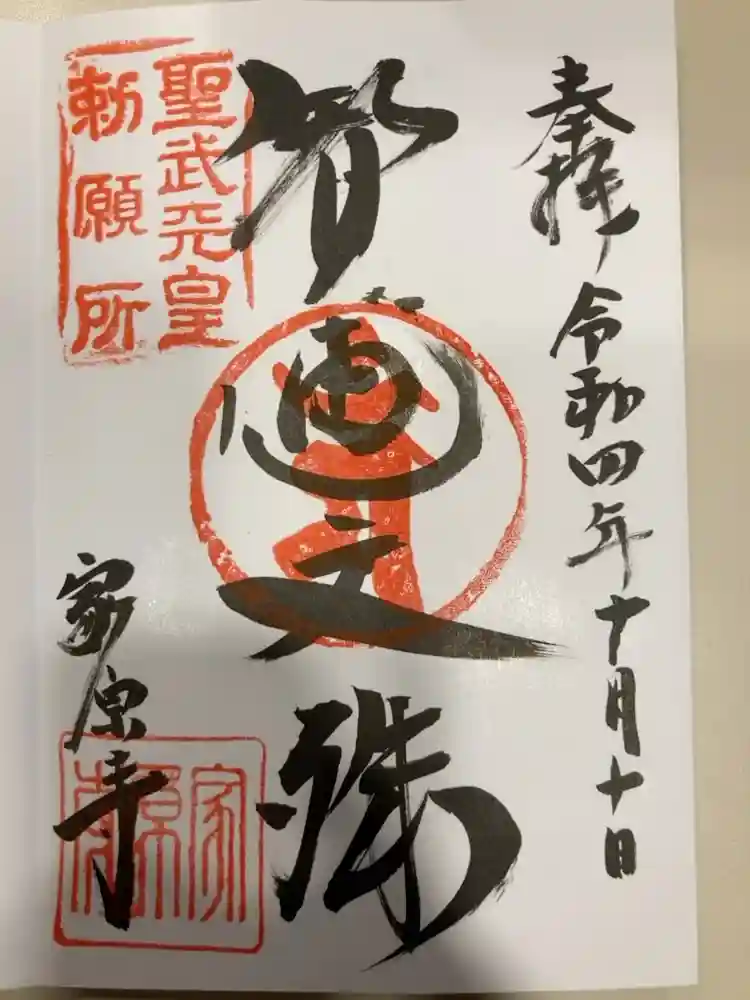 奉拝 令和四年十月十日
智恵文殊
聖武天皇
勅願所
家原寺
家原寺